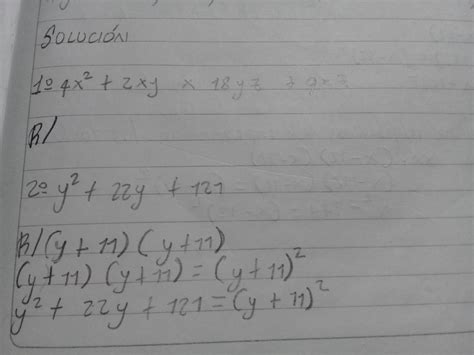 Solución
1º 4x² + 2xy x 18yz + 9x3
R/
2º y² + 22y + 121
R/ (y + 11) (y + 11)
(y + 11) (y + 11) = (y + 11)²
y² + 22y + 121 = (y + 11)²